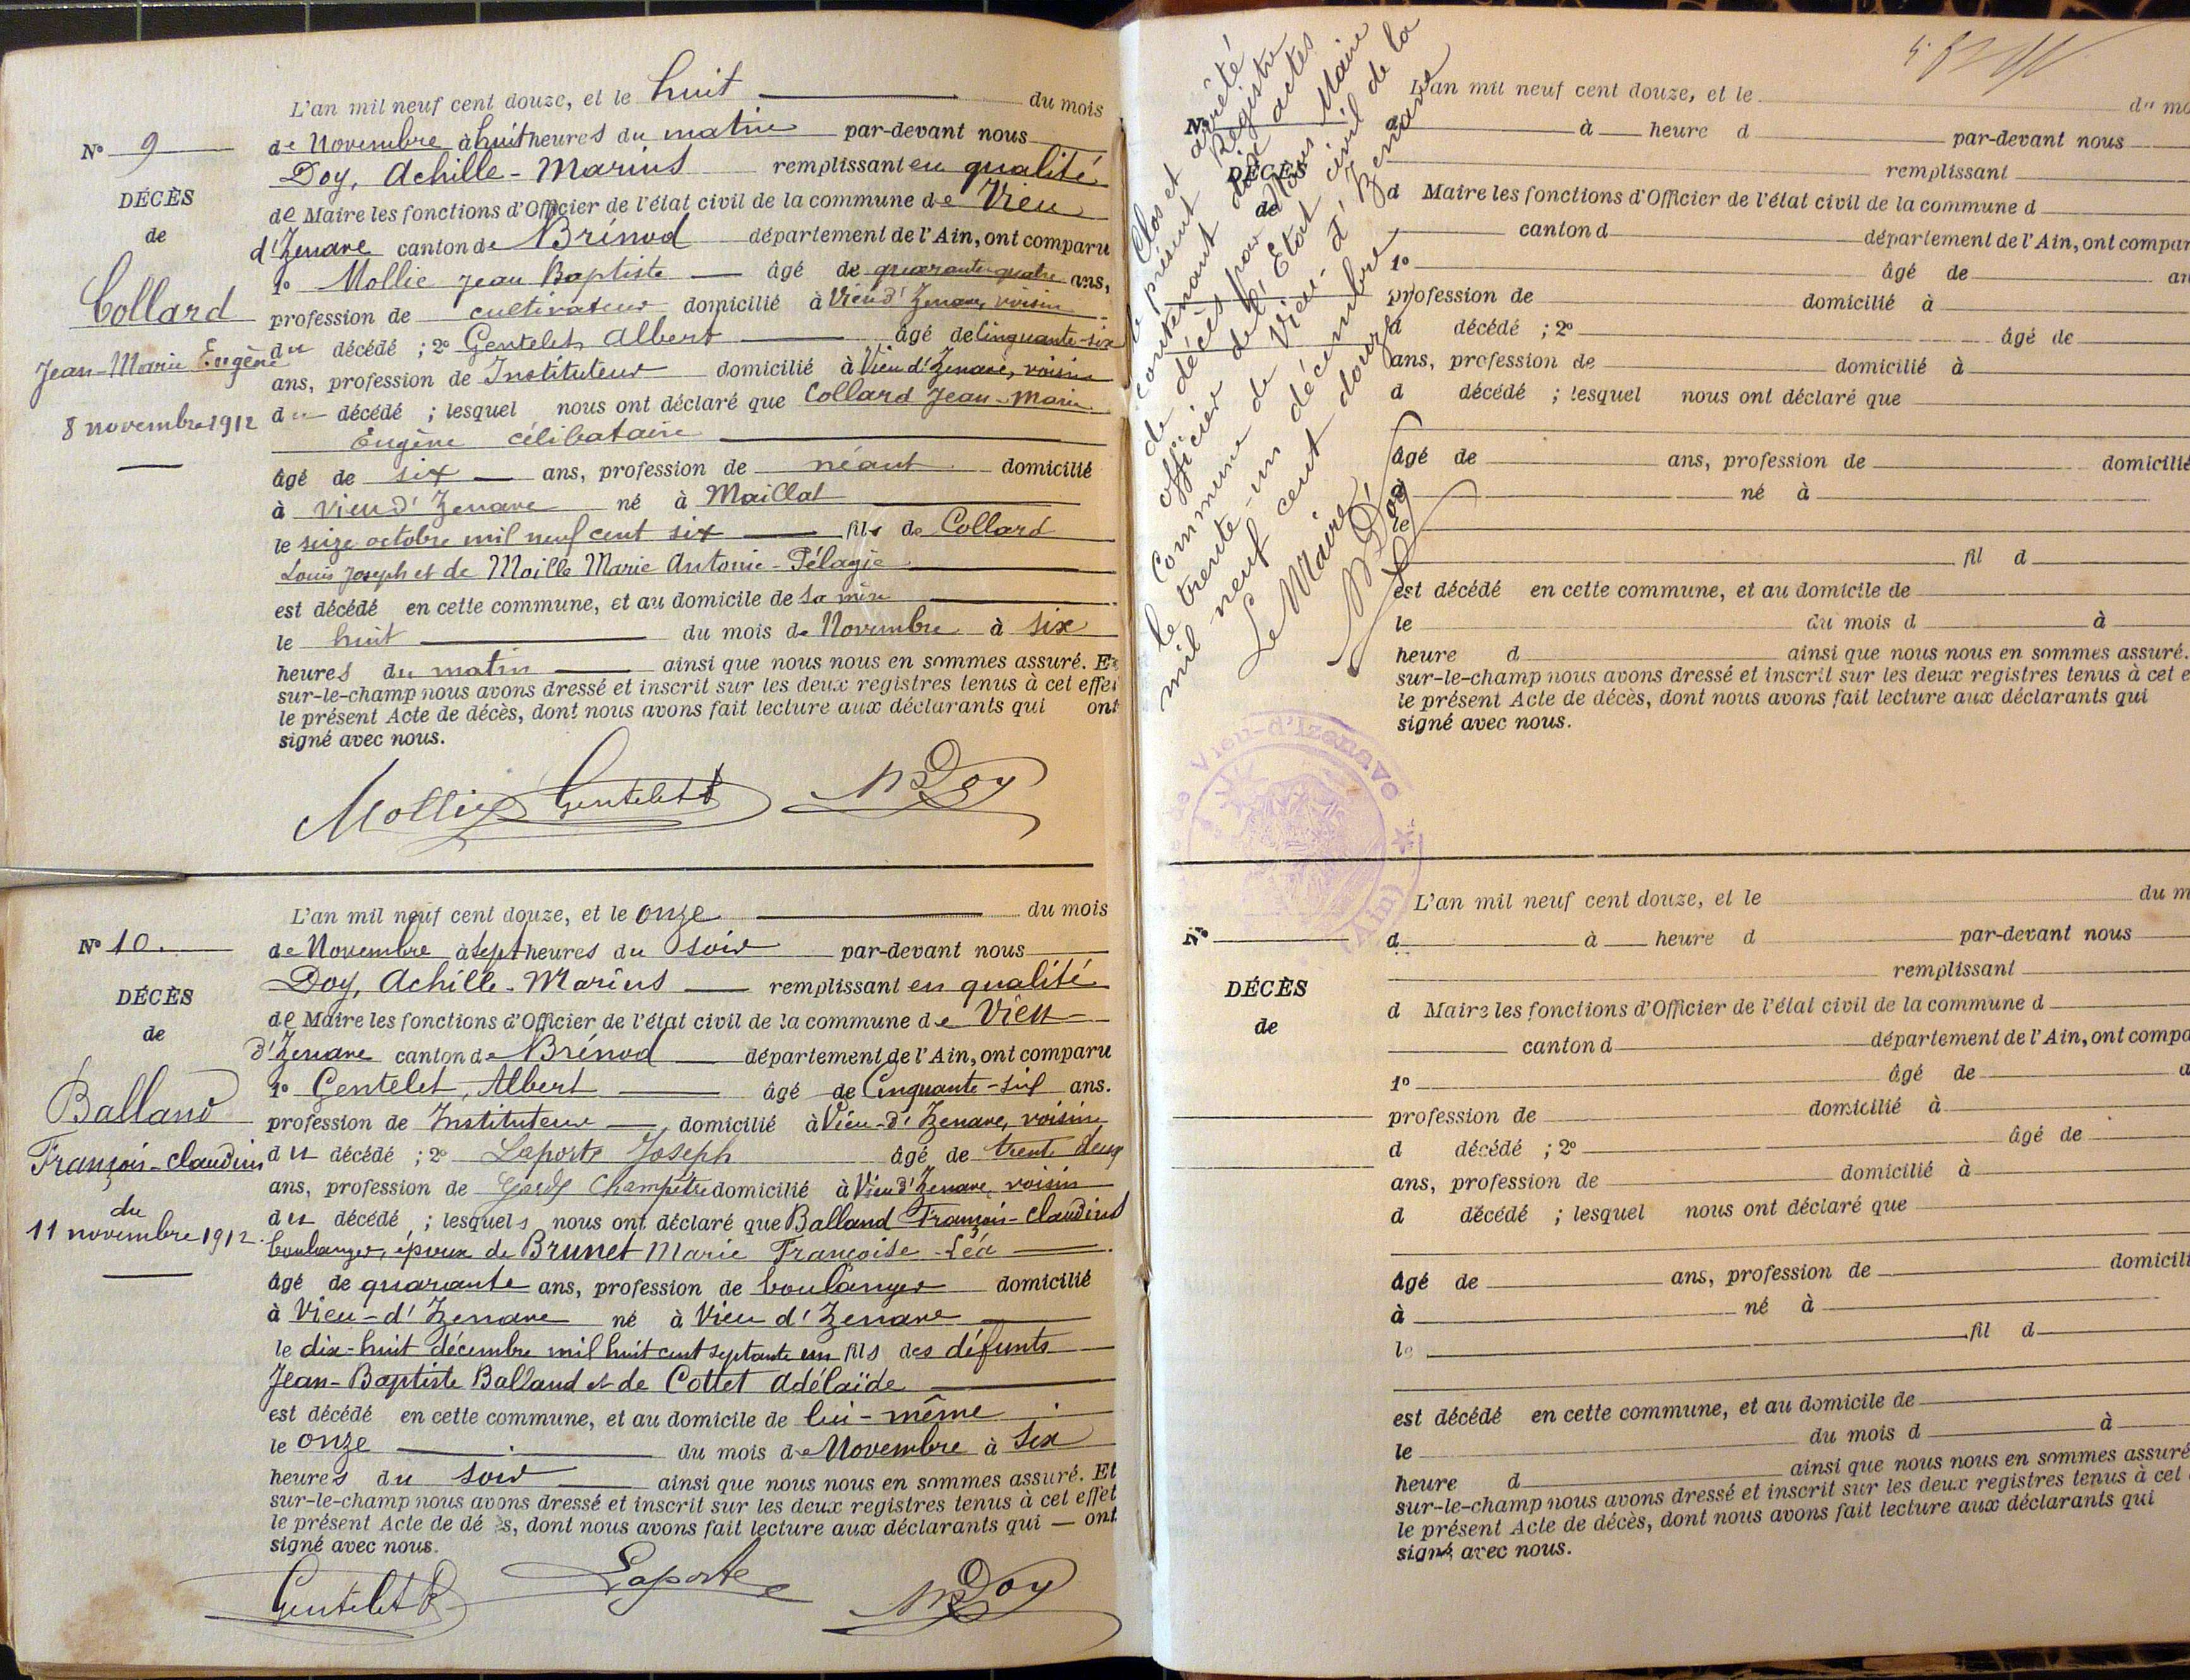 L'an mil neuf cent douze, et le huit du mois
N° 9
de Novembre à huit heures du matin par-devant nous
Doy, Achille-Marius remplissant en qualité
DÉCÈS
de Maire les fonctions d'Officier de l'état civil de la commune de Vieu
de
d'Izenave canton de Brénod département de l'Ain, ont comparu
1° Mollie Jean Baptiste âgé de quarante-quatre ans,
Collard
profession de cultivateur domicilié à Vieu d'Izenave, voisin
du décédé ; 2° Gentelet Albert âgé de Cinquante-six
Jean-Marie Eugène
ans, profession de Instituteur domicilié à Vieu d'Izenave, voisin
du décédé ; lesquel nous ont déclaré que Collard Jean-Marie
8 novembre 1912
Eugène célibataire
âgé de six ans, profession de néant domicilié
à Vieu d'Izenave né à Maillat
le seize octobre mil neuf cent six fils de Collard
Louis Joseph et de Moille Marie Antonie-Pélagie
est décédé en cette commune, et au domicile de sa mère
le huit du mois de Novembre à six
heures du matin ainsi que nous nous en sommes assuré. Et
sur-le-champ nous avons dressé et inscrit sur les deux registres tenus à cet effet
le présent Acte de décès, dont nous avons fait lecture aux déclarants qui ont
signé avec nous.
Mollie Gentelet A Doy
L'an mil neuf cent douze, et le onze du mois
N° 10.
de Novembre à sept heures du soir par-devant nous
Doy, Achille-Marius remplissant en qualité
DÉCÈS
de Maire les fonctions d'Officier de l'état civil de la commune de Vieu-
de
d'Izenave canton de Brénod département de l'Ain, ont comparu
1° Gentelet, Albert âgé de Cinquante-six ans.
Balland
profession de Instituteur domicilié à Vieu-d'Izenave, voisin
du décédé ; 2° Laporte Joseph âgé de trente deux
François-Claudius
ans, profession de Garde Champêtre domicilié à Vieu d'Izenave, voisin
du décédé ; lesquels nous ont déclaré que Balland François-Claudius
du
11 novembre 1912.
boulanger, époux de Brunet Marie Françoise-Léa
âgé de quarante ans, profession de boulanger domicilié
à Vieu-d'Izenave né à Vieu d'Izenave
le dix-huit décembre mil huit cent septante un fils des défunts
Jean-Baptiste Balland et de Cottet Adélaïde
est décédé en cette commune, et au domicile de lui-même
le onze du mois de Novembre à six
heures du soir ainsi que nous nous en sommes assuré. Et
sur-le-champ nous avons dressé et inscrit sur les deux registres tenus à cet effet
le présent Acte de dé s, dont nous avons fait lecture aux déclarants qui — ont
signé avec nous.
Gentelet A Laporte Doy
Clos et arrêté
le présent Registre
contenant dix actes
de décès par Nous Maire
officier de l'Etat civil de la
Commune de Vieu-d'Izenave
le trente-un décembre
mil neuf cent douze
Le Maire,
Doy
Vieu-d'Izenave
(Ain)
L'an mil neuf cent douze, et le du mo
N°
d à heure d par-devant nous
remplissant
DÉCÈS
d Maire les fonctions d'Officier de l'état civil de la commune d
de
canton d département de l'Ain, ont compar
1° âgé de an
profession de domicilié à
d décédé ; 2° âgé de
ans, profession de domicilié à
d décédé ; lesquel nous ont déclaré que
âgé de ans, profession de domicilié
à né à
le
fil d
est décédé en cette commune, et au domicile de
le du mois d à
heure d ainsi que nous nous en sommes assuré.
sur-le-champ nous avons dressé et inscrit sur les deux registres tenus à cet e
le présent Acte de décès, dont nous avons fait lecture aux déclarants qui
signé avec nous.
L'an mil neuf cent douze, et le du m
N°
d à heure d par-devant nous
remplissant
DÉCÈS
d Maire les fonctions d'Officier de l'état civil de la commune d
de
canton d département de l'Ain, ont compa
1° âgé de a
profession de domicilié à
d décédé ; 2° âgé de
ans, profession de domicilié à
d décédé ; lesquel nous ont déclaré que
âgé de ans, profession de domicili
à né à
le fil d
est décédé en cette commune, et au domicile de
le du mois d à
heure d ainsi que nous nous en sommes assuré
sur-le-champ nous avons dressé et inscrit sur les deux registres tenus à cet
le présent Acte de décès, dont nous avons fait lecture aux déclarants qui
signé avec nous.